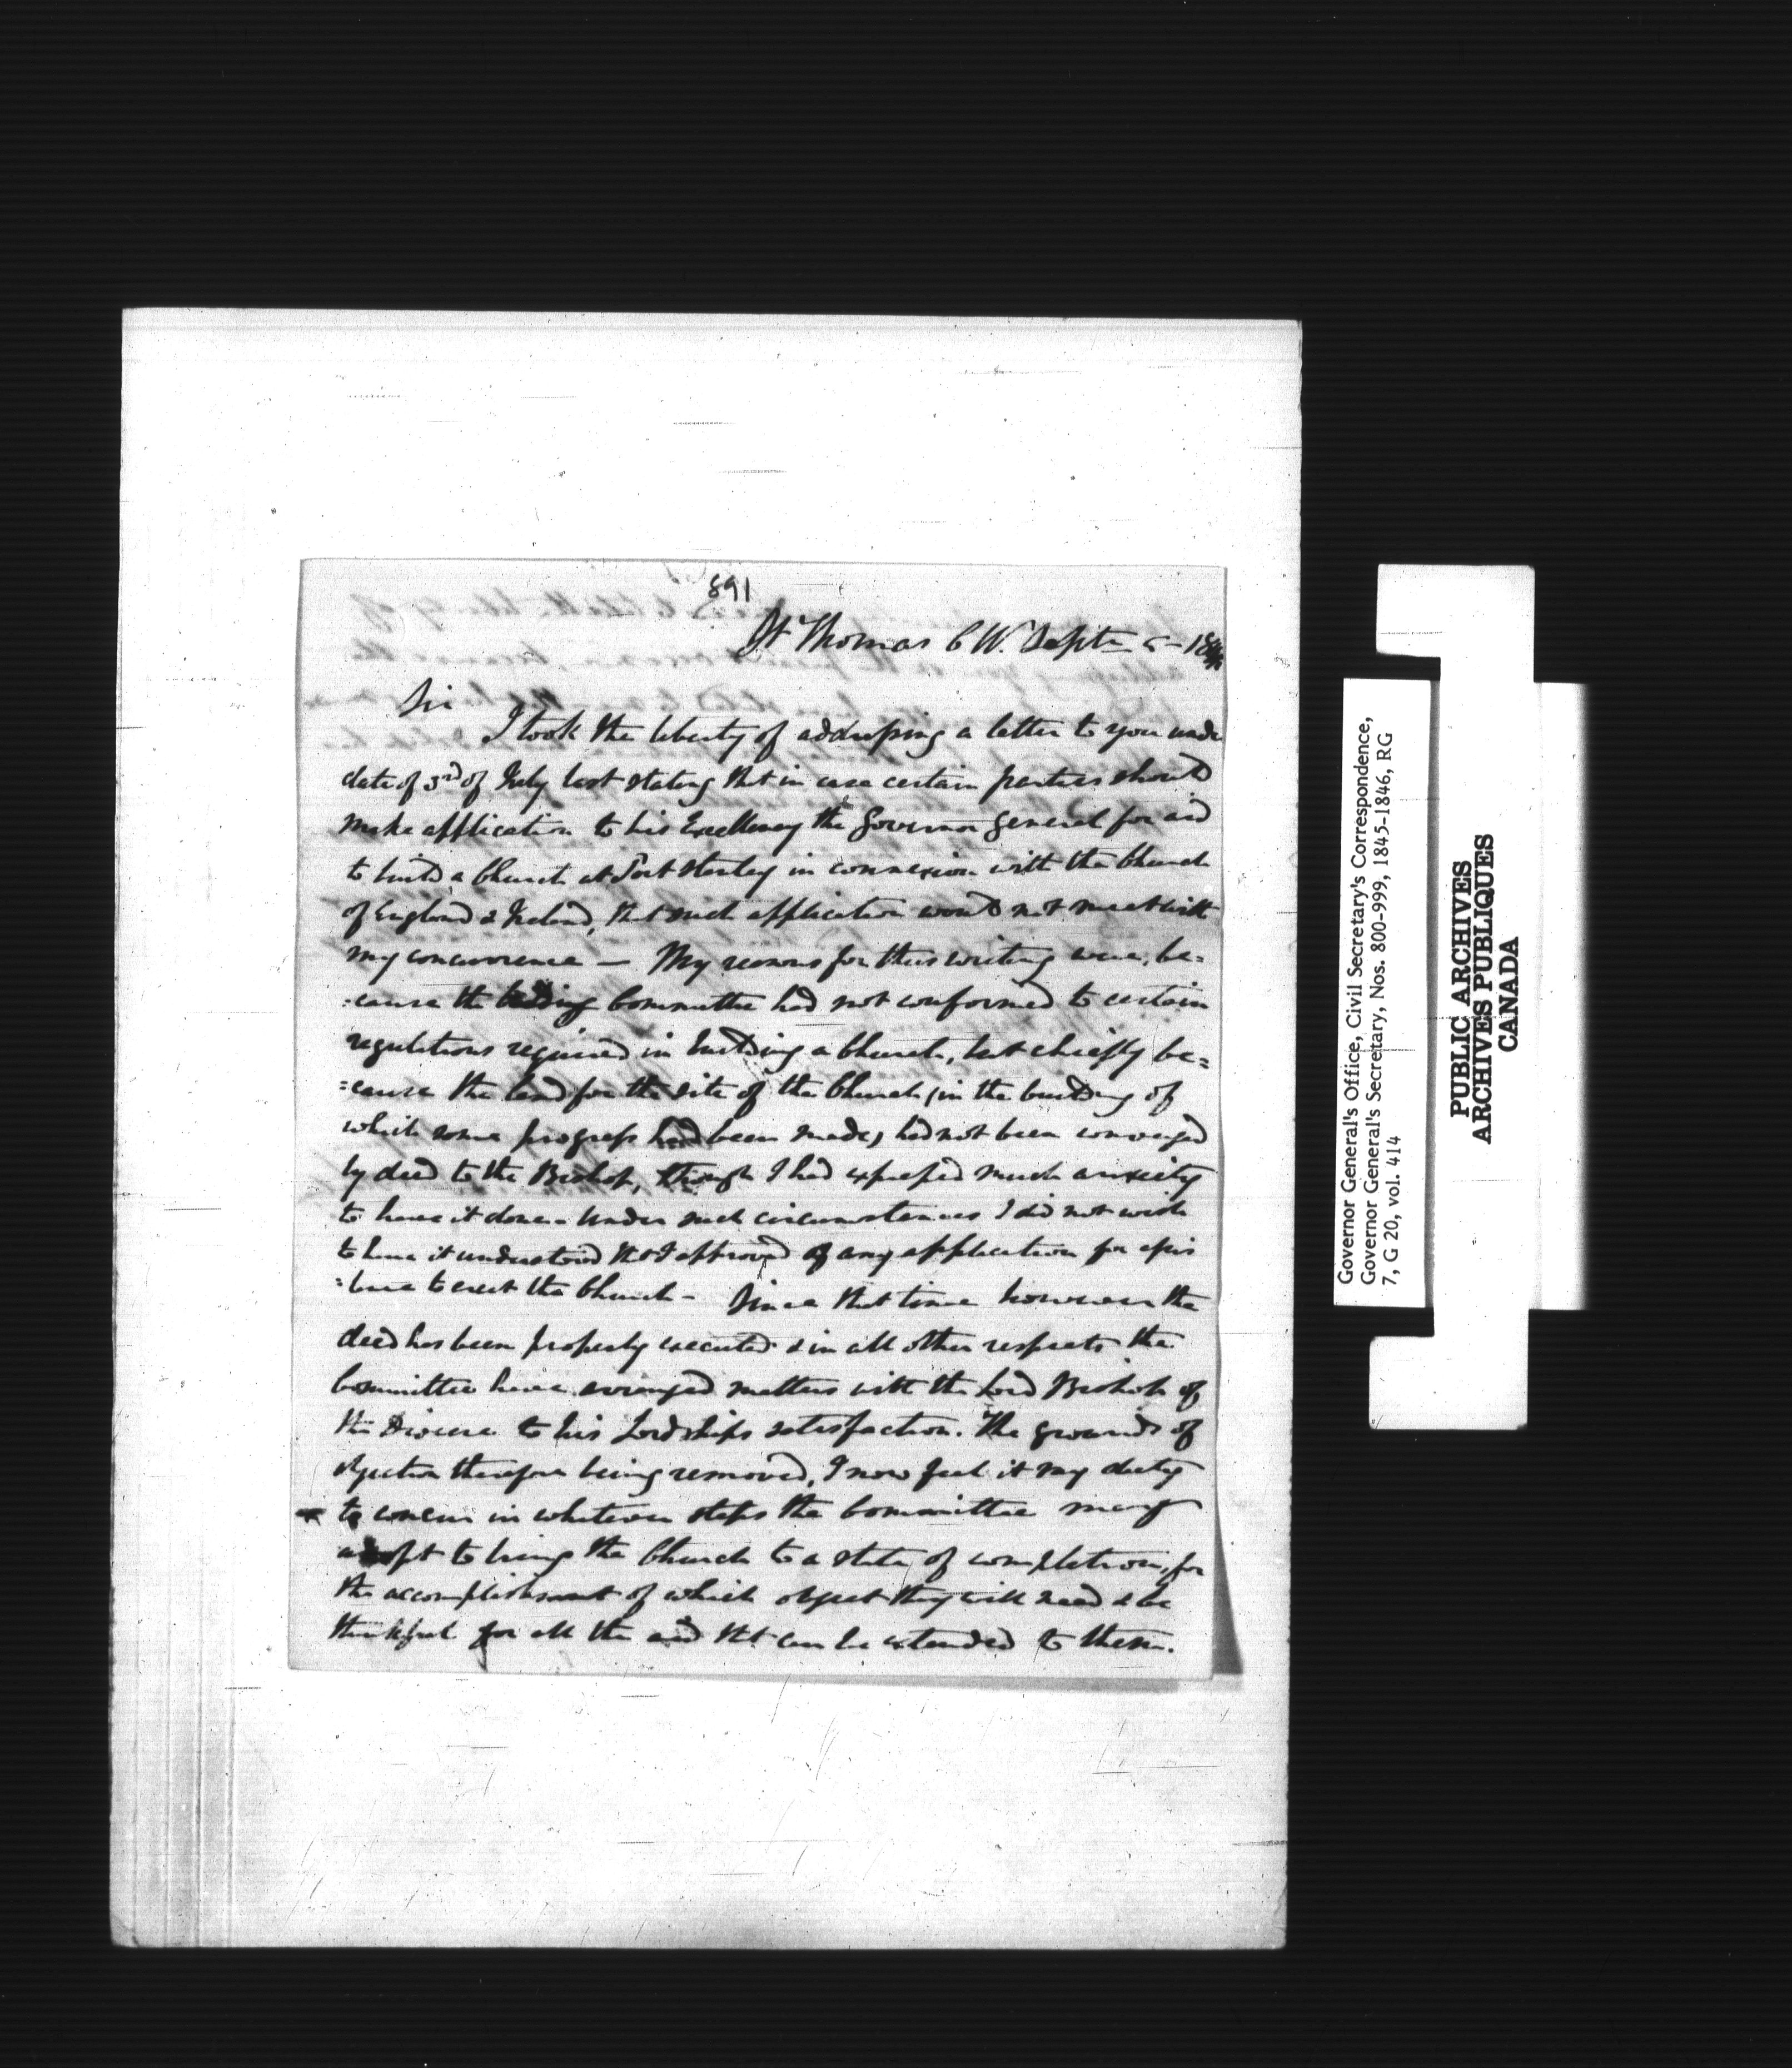 891
St Thomas C W. Septr 5 - 184
Sir
I took the liberty of addressing a letter to you under
date of 3rd of July last stating that in case certain parties should
make application to his Excellency the Governor General for aid
to build a Church at Port Stanley in connexion with the Church
of England & Ireland, that such application would not meet with
my concurrence — My reasons for thus writing were, be=
=cause the building Committee had not conformed to certain
regulations required in building a Church, but chiefly be=
=cause the land for the site of the Church (in the building of
which some progress had been made) had not been conveyed
by deed to the Bishop, though I had expressed much anxiety
to have it done. Under such circumstances I did not wish
to have it understood that I approved of any application for assis
=tance to erect the Church - Since that time however the
deed has been properly executed & in all other respects the
Committee have arranged matters with the Lord Bishop of
the Diocese to his Lordships satisfaction. The grounds of
objection therefore being removed, I now feel it my duty
to concur in whatever steps the Committee may
adopt to bring the Church to a state of completion, for
the accomplishment of which object they will need & be
thankful for all the aid that can be extended to them.
Governor General's Office, Civil Secretary's Correspondence,
Governor General's Secretary, Nos. 800-999, 1845-1846, RG
7, G 20, vol. 414
PUBLIC ARCHIVES
ARCHIVES PUBLIQUES
CANADA